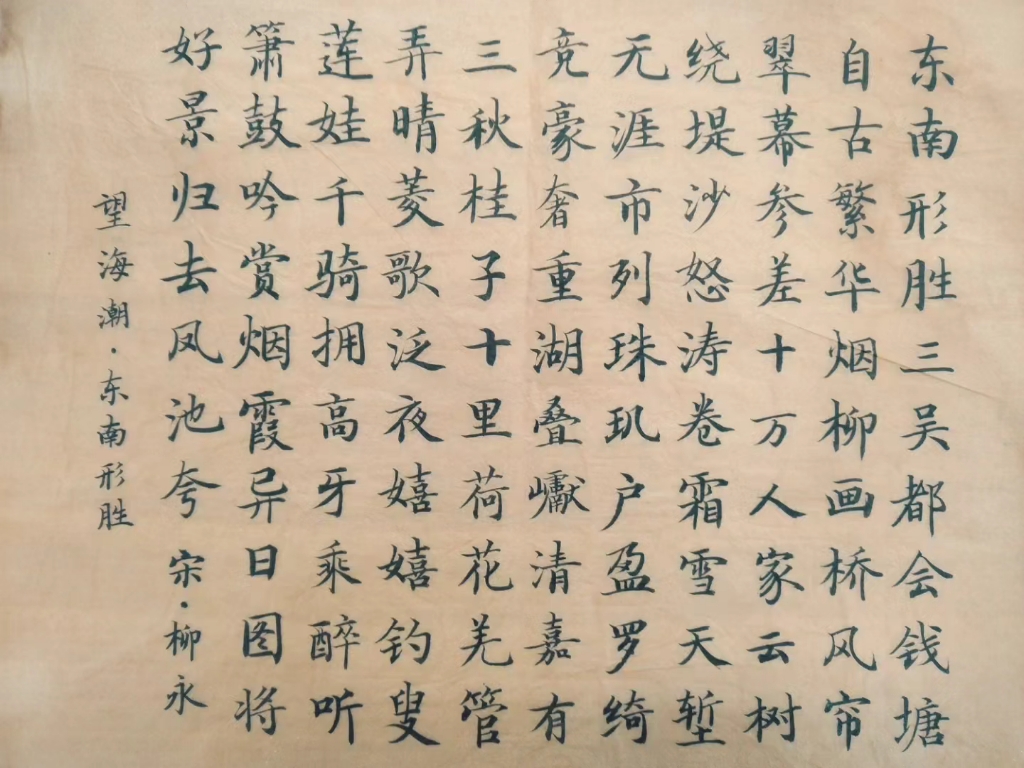 东南形胜三吴都会钱塘
自古繁华烟柳画桥风帘
翠幕参差十万人家云树
绕堤沙怒涛卷霜雪天堑
无涯市列珠玑户盈罗绮
竞豪奢重湖叠巘清嘉有
三秋桂子十里荷花羌管
弄晴菱歌泛夜嬉嬉钓叟
莲娃千骑拥高牙乘醉听
箫鼓吟赏烟霞异日图将
好景归去凤池夸 宋·柳永
望海潮·东南形胜